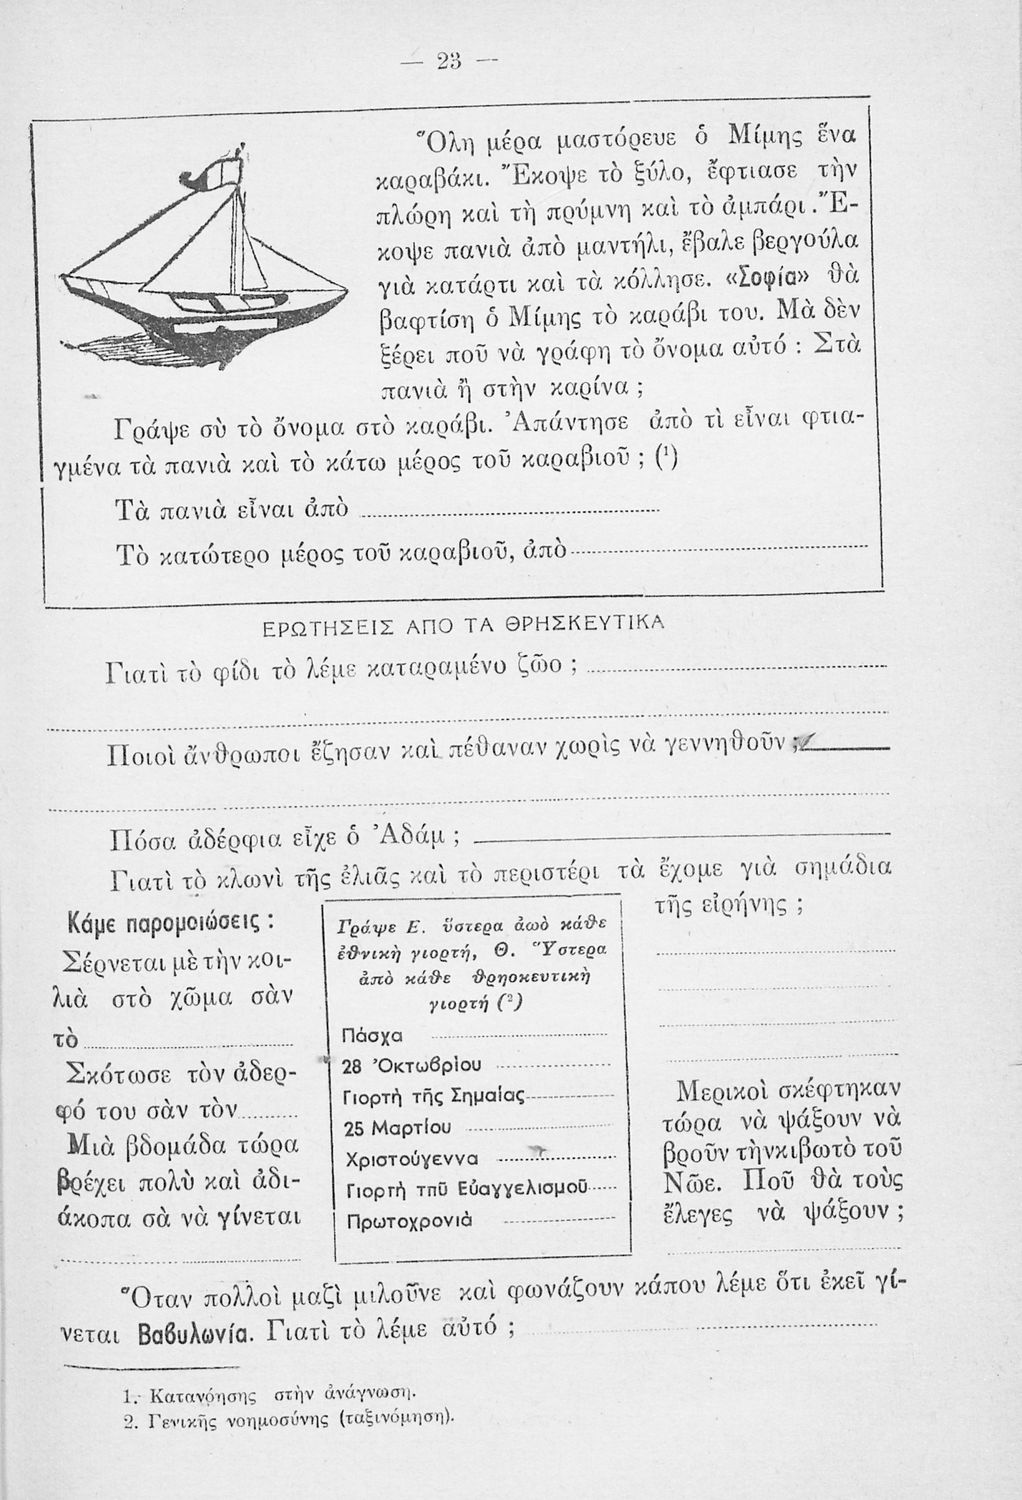 — 23 —
Ὅλη μέρα μαστόρευε ὁ Μίμης ἕνα
καραβάκι. Ἔκοψε τὸ ξύλο, ἔφτιασε τὴν
πλώρη καὶ τὴ πρύμνη καὶ τὸ ἀμπάρι. Ἔ-
κοψε πανιὰ ἀπὸ μαντήλι, ἔβαλε βεργούλα
γιὰ κατάρτι καὶ τὰ κόλλησε. «Σοφία» θὰ
βαφτίση ὁ Μίμης τὸ καράβι του. Μὰ δὲν
ξέρει ποῦ νὰ γράφη τὸ ὄνομα αὐτό : Στὰ
πανιὰ ἢ στὴν καρίνα ;
Γράψε σὺ τὸ ὄνομα στὸ καράβι. Ἀπάντησε ἀπὸ τὶ εἶναι φτια-
γμένα τὰ πανιὰ καὶ τὸ κάτω μέρος τοῦ καραβιοῦ ; (¹)
Τὰ πανιὰ εἶναι ἀπὸ
Τὸ κατώτερο μέρος τοῦ καραβιοῦ, ἀπὸ
ΕΡΩΤΗΣΕΙΣ ΑΠΟ ΤΑ ΘΡΗΣΚΕΥΤΙΚΑ
Γιατὶ τὸ φίδι τὸ λέμε καταραμένο ζῶο ;
Ποιοὶ ἄνθρωποι ἔζησαν καὶ πέθαναν χωρὶς νὰ γεννηθοῦν ;
Πόσα ἀδέρφια εἶχε ὁ Ἀδάμ ;
Γιατὶ τὸ κλωνὶ τῆς ἐλιᾶς καὶ τὸ περιστέρι τὰ ἔχομε γιὰ σημάδια
τῆς εἰρήνης ;
Κάμε παρομοιώσεις :
Σέρνεται μὲ τὴν κοι-
λιὰ στὸ χῶμα σὰν
τὸ
Σκότωσε τὸν ἀδερ-
φό του σὰν τὸν
Μιὰ βδομάδα τώρα
βρέχει πολὺ καὶ ἀδι-
άκοπα σὰ νὰ γίνεται
Γράψε Ε. ὕστερα ἀωὸ κάθε
ἐθνικὴ γιορτή, Θ. Ὕστερα
ἀπὸ κάθε θρηοκευτικὴ
γιορτή (²)
Πάσχα
28 Ὀκτωβρίου
Γιορτὴ τῆς Σημαίας
25 Μαρτίου
Χριστούγεννα
Γιορτὴ τπῦ Εὐαγγελισμοῦ
Πρωτοχρονιὰ
Μερικοὶ σκέφτηκαν
τώρα νὰ ψάξουν νὰ
βροῦν τὴνκιβωτὸ τοῦ
Νῶε. Ποῦ θὰ τοὺς
ἔλεγες νὰ ψάξουν ;
Ὅταν πολλοὶ μαζὶ μιλοῦνε καὶ φωνάζουν κάπου λέμε ὅτι ἐκεῖ γί-
νεται Βαβυλωνία. Γιατὶ τὸ λέμε αὐτό ;
1. Κατανόησης στὴν ἀνάγνωση.
2. Γενικῆς νοημοσύνης (ταξινόμηση).